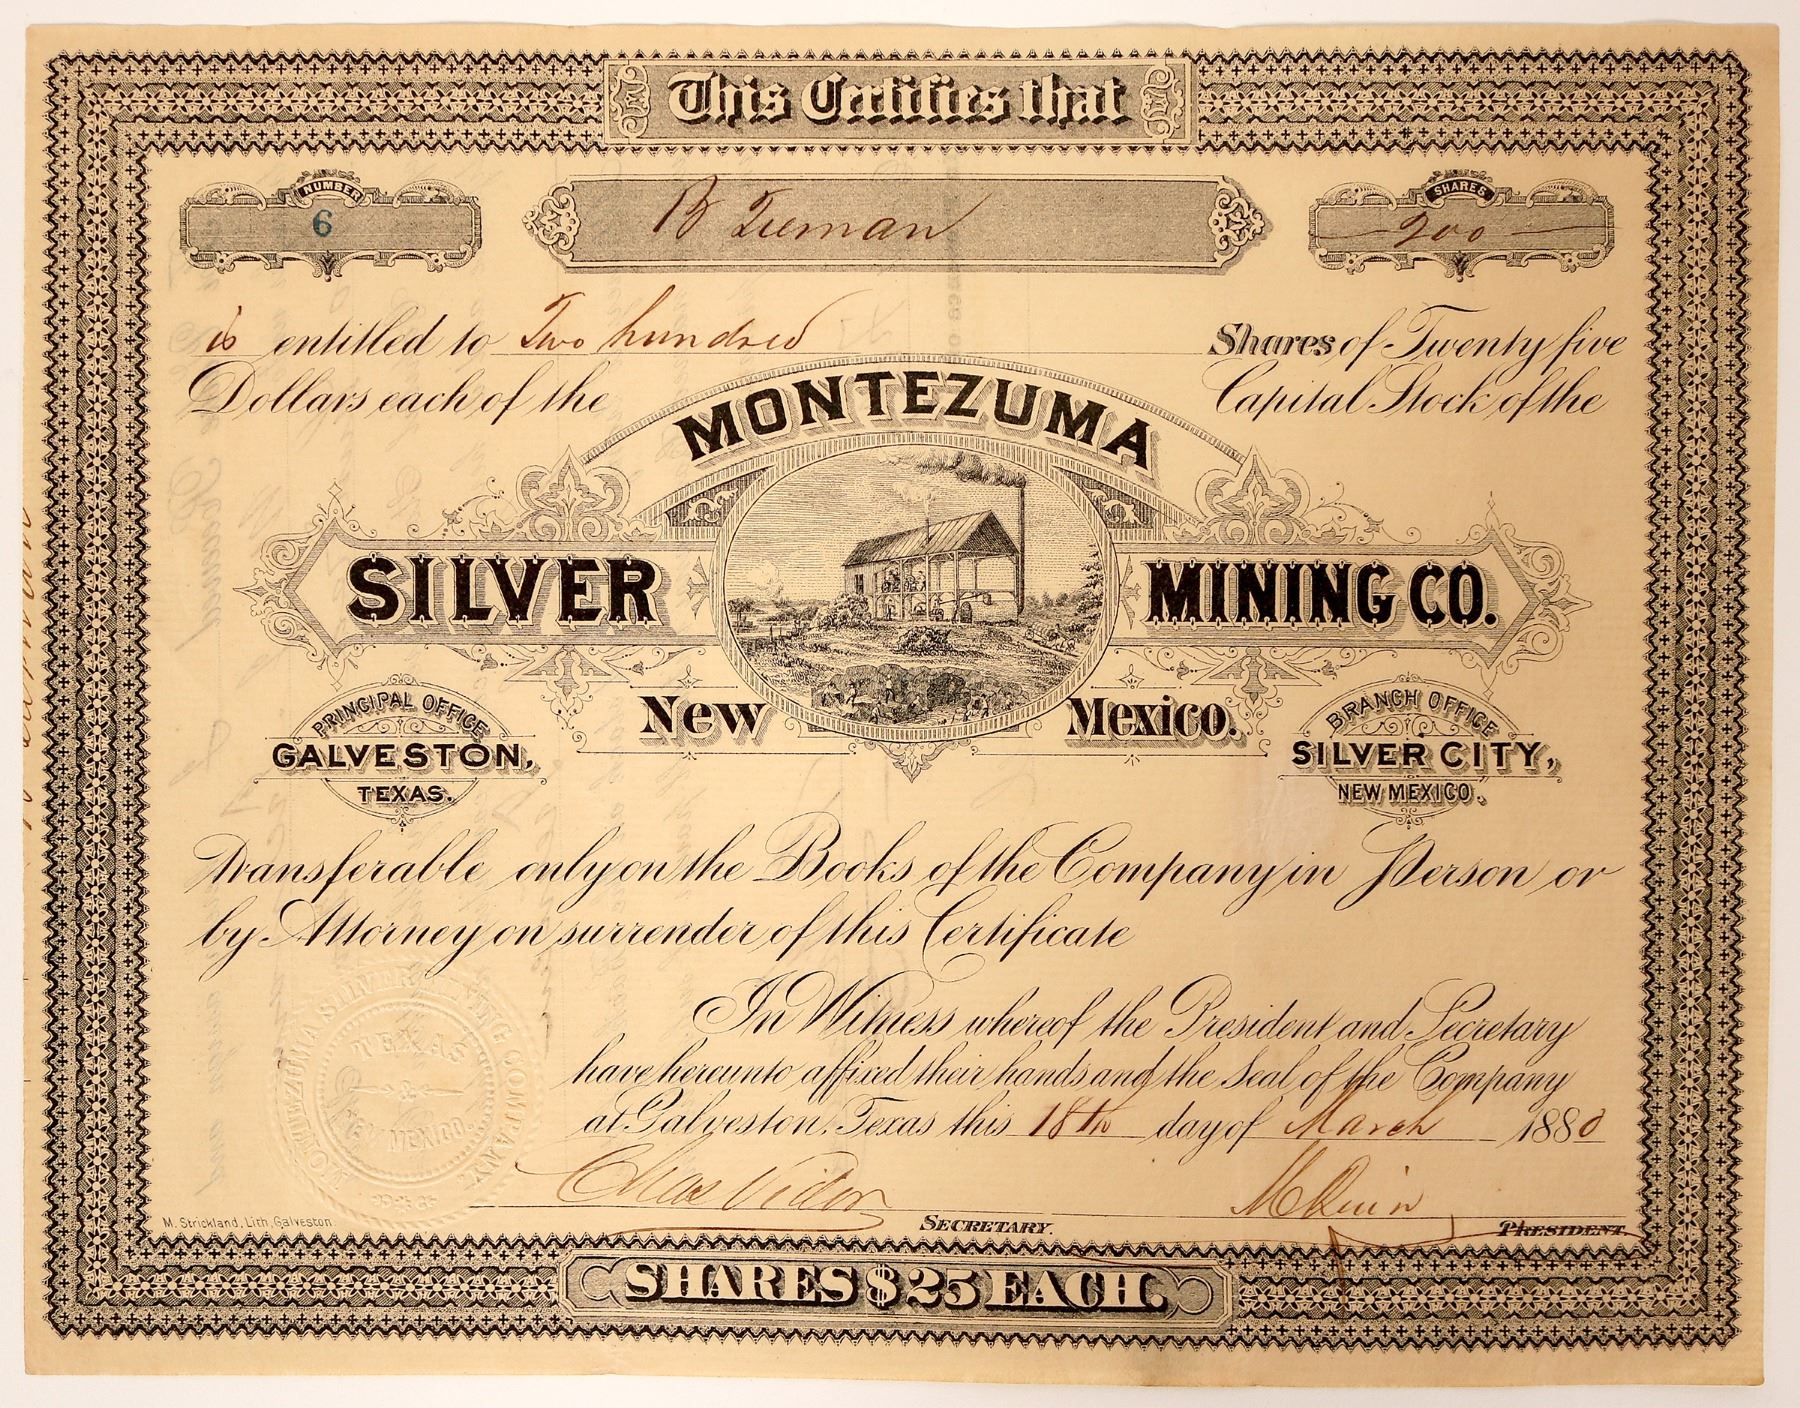 This Certifies that
NUMBER
6
B Tieman
SHARES
200
is entitled to Two hundred Shares of Twenty five
Dollars each of the Capital Stock of the
MONTEZUMA
SILVER MINING CO.
New Mexico.
PRINCIPAL OFFICE
GALVESTON,
TEXAS.
BRANCH OFFICE
SILVER CITY,
NEW MEXICO.
Transferable only on the Books of the Company in Person or
by Attorney on surrender of this Certificate
In Witness whereof the President and Secretary
have hereunto affixed their hands and the Seal of the Company
at Galveston, Texas this 18th day of March 1880
MONTEZUMA SILVER MINING COMPANY.
TEXAS
&
NEW MEXICO.
Chas Vidor
SECRETARY.
PRESIDENT.
M. Strickland, Lith, Galveston.
SHARES $25 EACH.